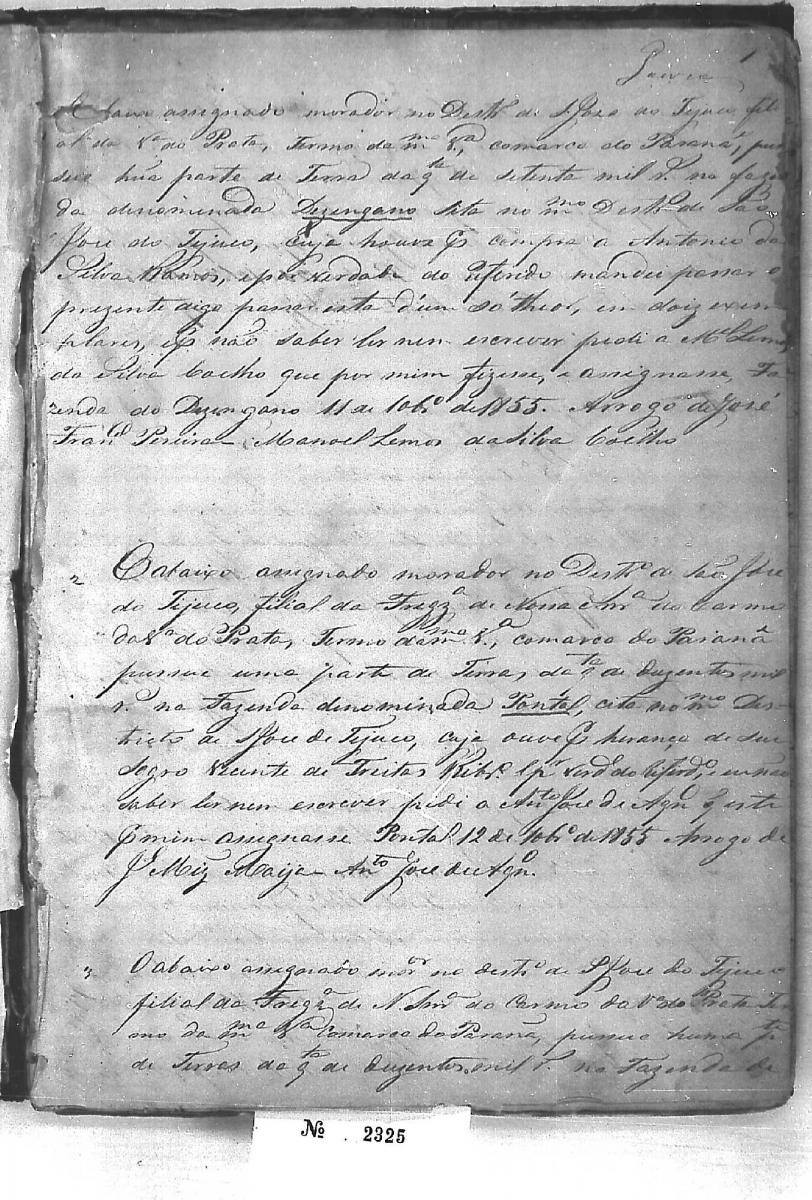 1
O abaixo assignado morador no Destr.º de S. Joze do Tejuco, fili
al da V.ª do Prata, Termo da m.ma V.ª, comarca do Paraná, pus
sue hũa parte de Terra da q.ta de setenta mil r.s na fazen
da denominada Dezengano sita no m.mo Destr.º de São
Jose do Tejuco, Cuja houve p compra a Antonio da
Silva Ramos, e por verdade do referido mandei passar o
prezente digo passar esta d'um só theor, em doiz exem
plares, e p não saber ler nem escrever pedi a M.el Lemos
da Silva Coelho que por mim fizesse, e assignasse, Fa
zenda do Dezengano 11 de 10br.º de 1855. Arrogo de José
Fran.co Pereira Manoel Lemos da Silva Coelho
2 O abaixo assignado morador no Destr.º de São Jose
do Tijuco, filial da Freg.ª de Nossa Snr.ª do Carmo
da V.ª do Prata, Termo da m.ma V.ª, comarca do Paraná
pussue uma parte de Terras, da q.ta de duzentos mil
r.s na Fazenda denominada Pontal, cita no m.mo Des
tricto de S. Jose de Tejuco, cuja ouve p herança de seu
sogro Vicente de Freitas Ribr.º e p.r verd.e do referd.º, e eu não
saber ler nem escrever pidi a Ant.o Jose de Aqn.º q este
p mim assignasse Pontal 12 de 10br.º de 1855 Arrogo de
J.e Miz Ant.o Jose de Aqn.º
3 O abaixo assignado mor.or no destr.º de S. Jose do Tijuco
filial da Freg.ª de N. Snr.ª do Carmo da V.ª do Prata Ter
mo da m.ma V.ª Comarca do Paraná, pussue huma p.te
de Terras da q.ta de duzentos mil r.s na Fazenda de
Nº 2325